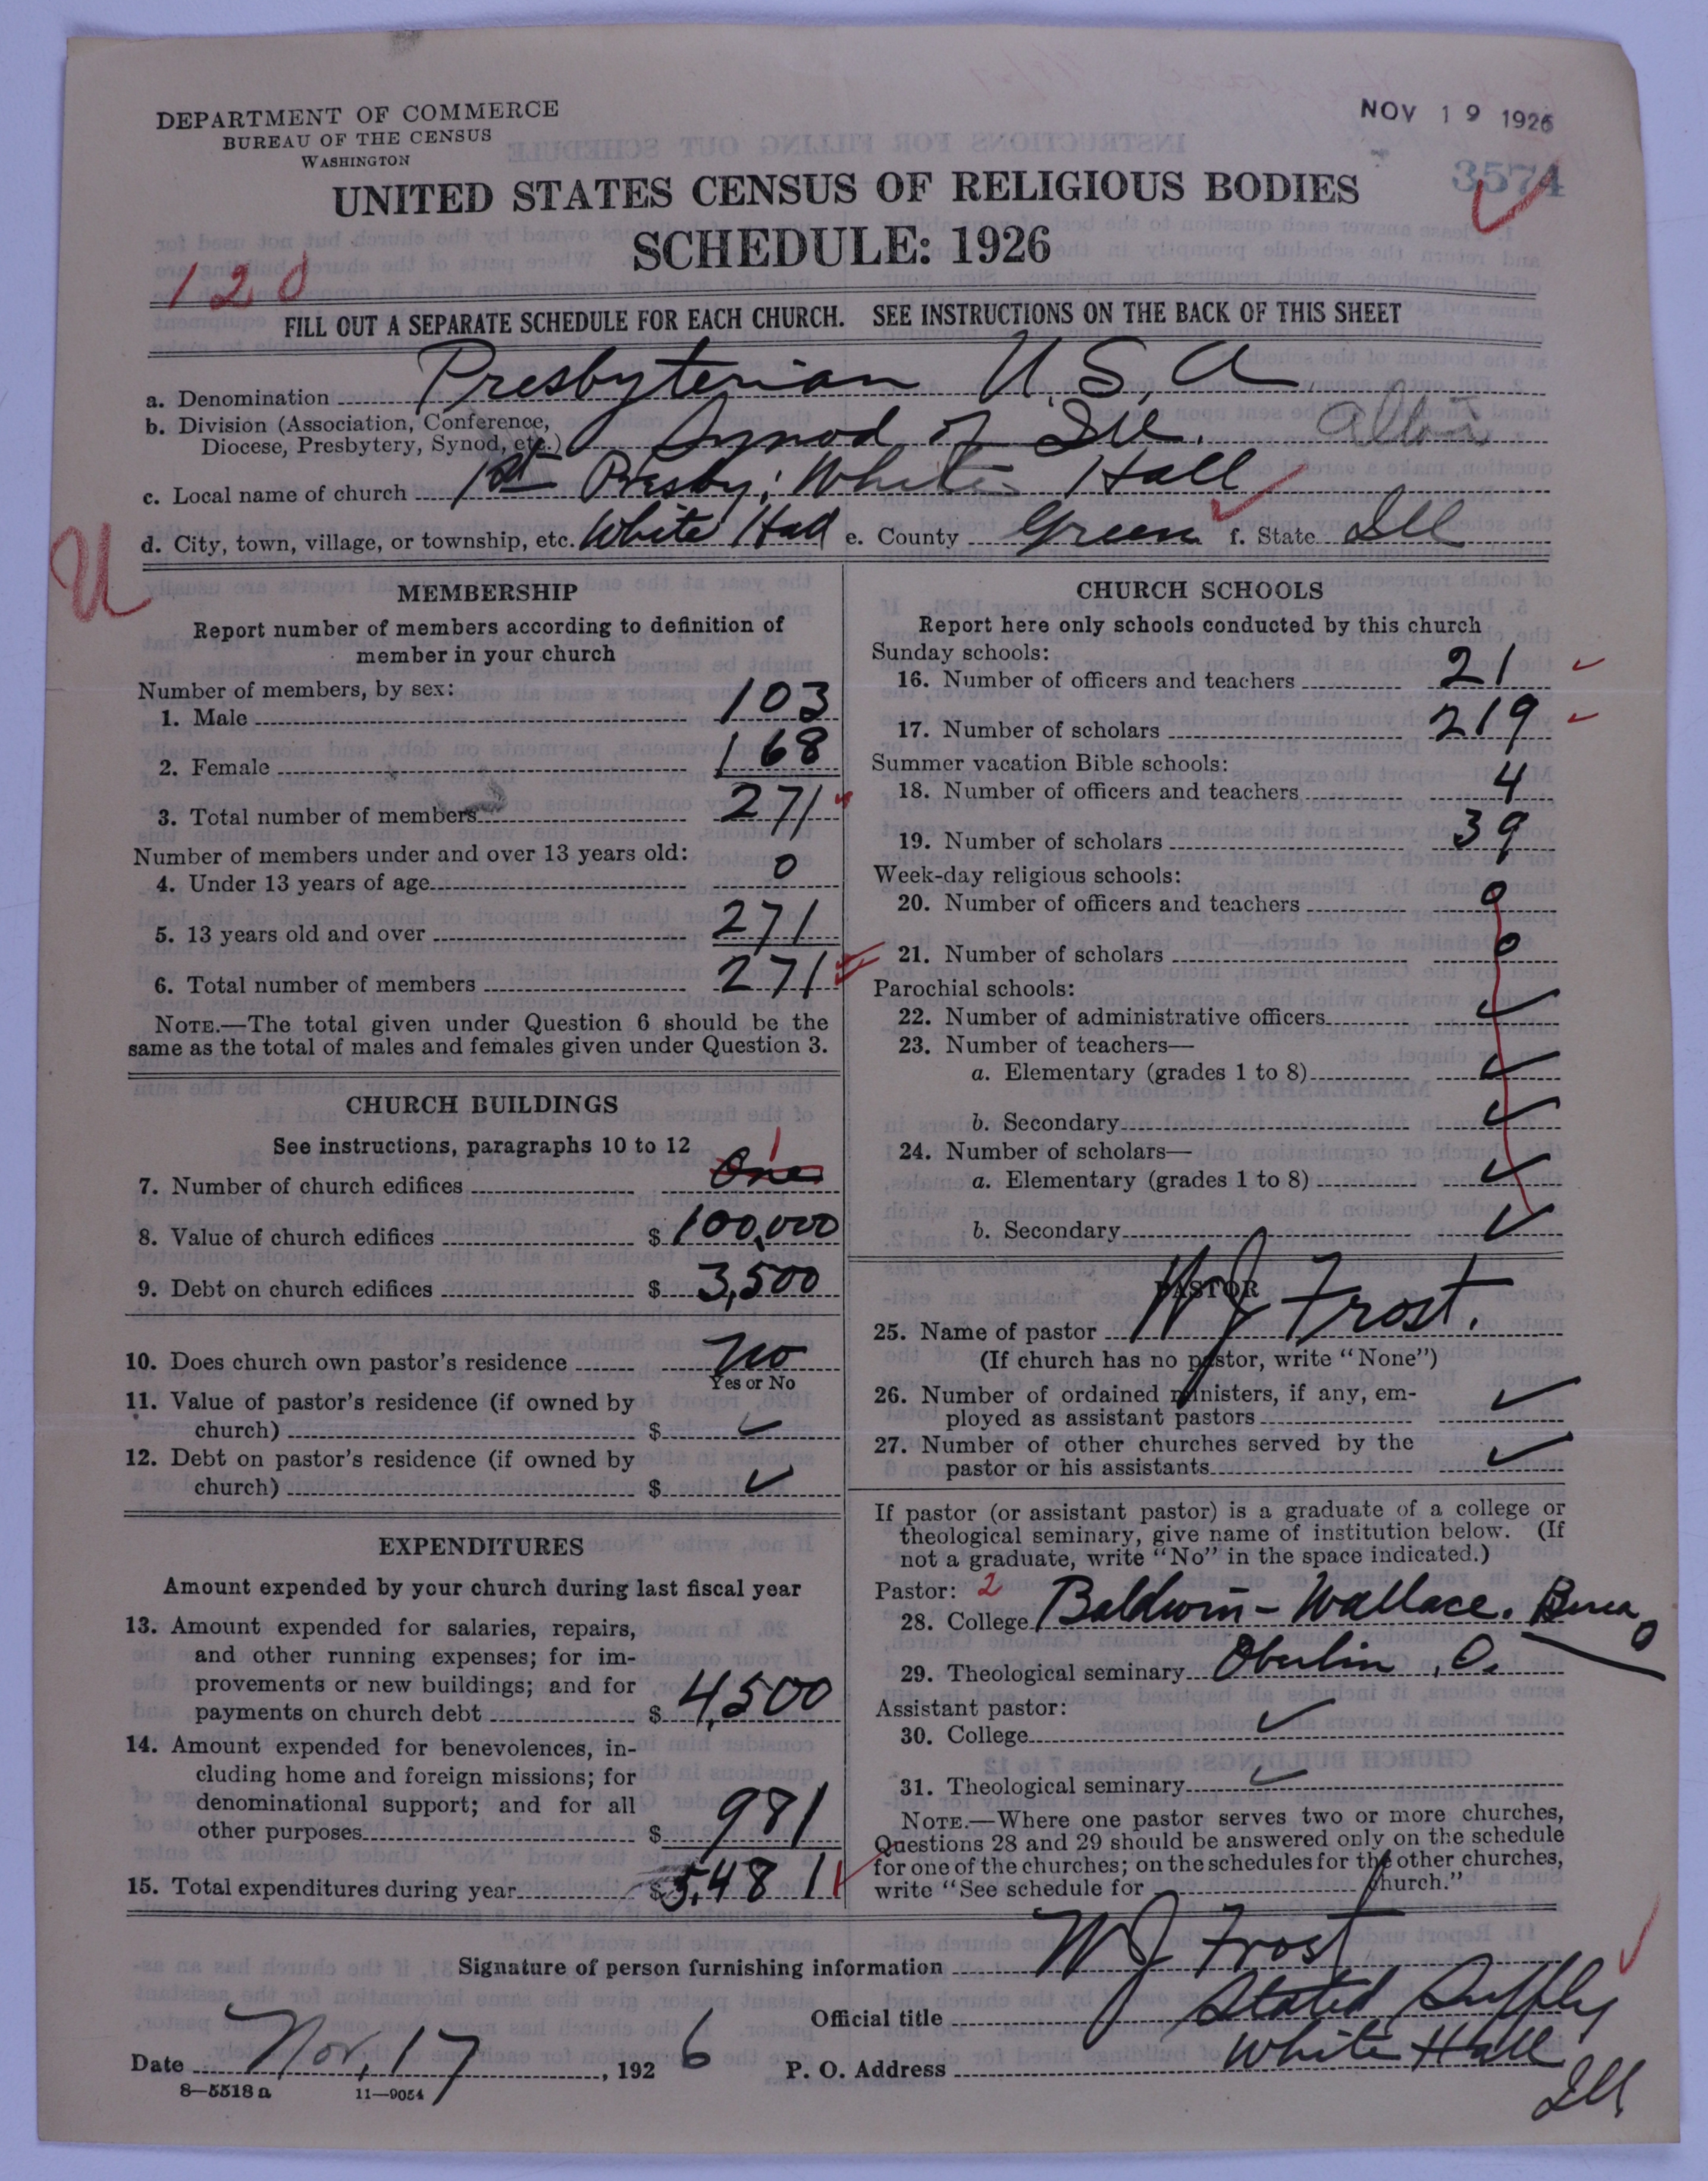 DEPARTMENT OF COMMERCE
BUREAU OF THE CENSUS
WASHINGTON
NOV 19 1926
3574
UNITED STATES CENSUS OF RELIGIOUS BODIES
SCHEDULE: 1926
120
FILL OUT A SEPARATE SCHEDULE FOR EACH CHURCH. SEE INSTRUCTIONS ON THE BACK OF THIS SHEET
a. Denomination Presbyterian U.S.A
b. Division (Association, Conference,
Diocese, Presbytery, Synod, etc.) Synod of Ill. Alton
c. Local name of church 1st Presby; White Hall
d. City, town, village, or township, etc. White Hall e. County Green f. State Ill
U
MEMBERSHIP
Report number of members according to definition of
member in your church
Number of members, by sex:
1. Male 103
2. Female 168
3. Total number of members 271
Number of members under and over 13 years old:
4. Under 13 years of age 0
5. 13 years old and over 271
6. Total number of members 271
NOTE.—The total given under Question 6 should be the
same as the total of males and females given under Question 3.
CHURCH BUILDINGS
See instructions, paragraphs 10 to 12
7. Number of church edifices One 1
8. Value of church edifices $ 100,000
9. Debt on church edifices $ 3,500
10. Does church own pastor's residence No
Yes or No
11. Value of pastor's residence (if owned by
church) $ ✓
12. Debt on pastor's residence (if owned by
church) $ ✓
EXPENDITURES
Amount expended by your church during last fiscal year
13. Amount expended for salaries, repairs,
and other running expenses; for im-
provements or new buildings; and for
payments on church debt $ 4,500
14. Amount expended for benevolences, in-
cluding home and foreign missions; for
denominational support; and for all
other purposes $ 981
15. Total expenditures during year $ 5,481
CHURCH SCHOOLS
Report here only schools conducted by this church
Sunday schools:
16. Number of officers and teachers 21
17. Number of scholars 219
Summer vacation Bible schools:
18. Number of officers and teachers 4
19. Number of scholars 39
Week-day religious schools:
20. Number of officers and teachers 0
21. Number of scholars 0
Parochial schools:
22. Number of administrative officers ✓
23. Number of teachers—
a. Elementary (grades 1 to 8) ✓
b. Secondary ✓
24. Number of scholars—
a. Elementary (grades 1 to 8) ✓
b. Secondary ✓
PASTOR
25. Name of pastor W J Frost.
(If church has no pastor, write "None")
26. Number of ordained ministers, if any, em-
ployed as assistant pastors ✓
27. Number of other churches served by the
pastor or his assistants ✓
If pastor (or assistant pastor) is a graduate of a college or
theological seminary, give name of institution below. (If
not a graduate, write "No" in the space indicated.)
Pastor: 2
28. College Baldwin-Wallace. Berea O
29. Theological seminary Oberlin, O.
Assistant pastor:
30. College ✓
31. Theological seminary ✓
NOTE.—Where one pastor serves two or more churches,
Questions 28 and 29 should be answered only on the schedule
for one of the churches; on the schedules for the other churches,
write "See schedule for church."
Signature of person furnishing information W J Frost
Official title Stated Supply
Date Nov. 17, 1926 P. O. Address White Hall
Ill
8—5518 a 11—9054